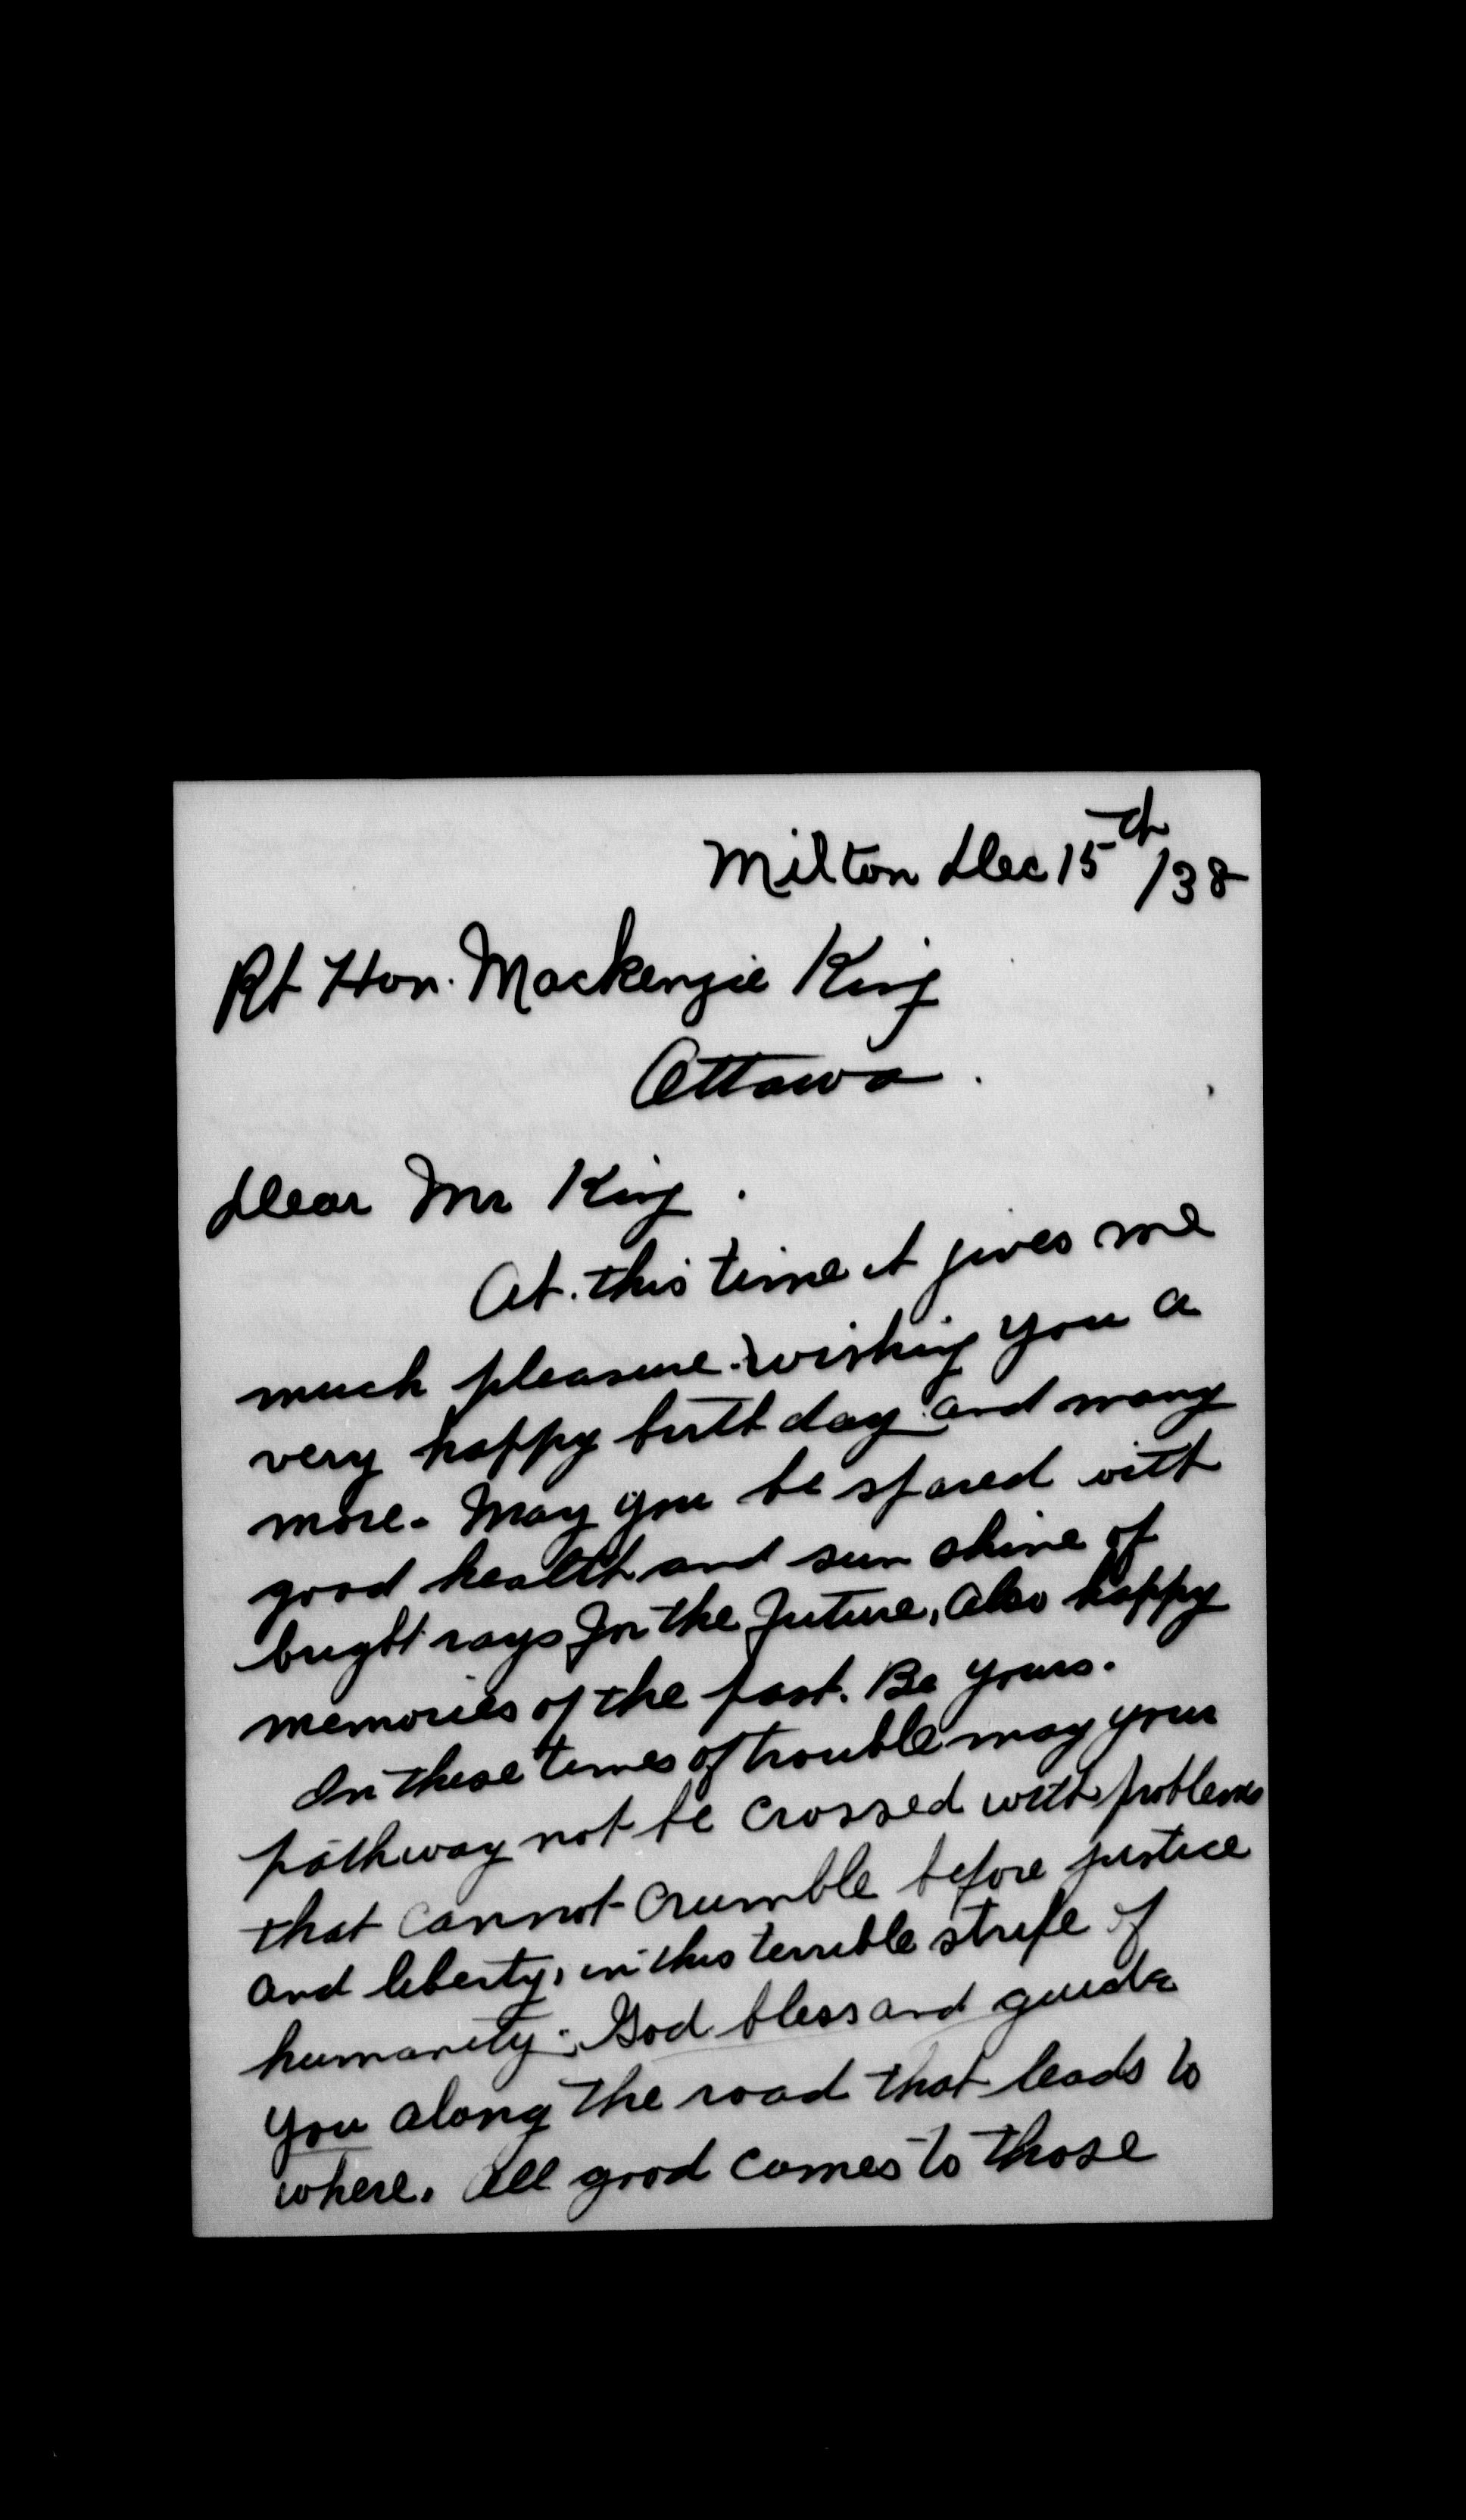 Milton Dec 15th/38
Rt Hon. Mackenzie King
Ottawa.
Dear Mr King.
At. this time it gives me
much pleasure. wishing you a
very happy birthday and many
more. May you be spared with
good health and sun shine of
bright rays for the future, also happy
memories of the past. Be yours.
In these times of trouble may your
pathway not be crossed with problems
that cannot crumble before justice
and liberty, in this terrible strife of
humanity. God bless and guide
you along the road that leads to
where. All good comes to those